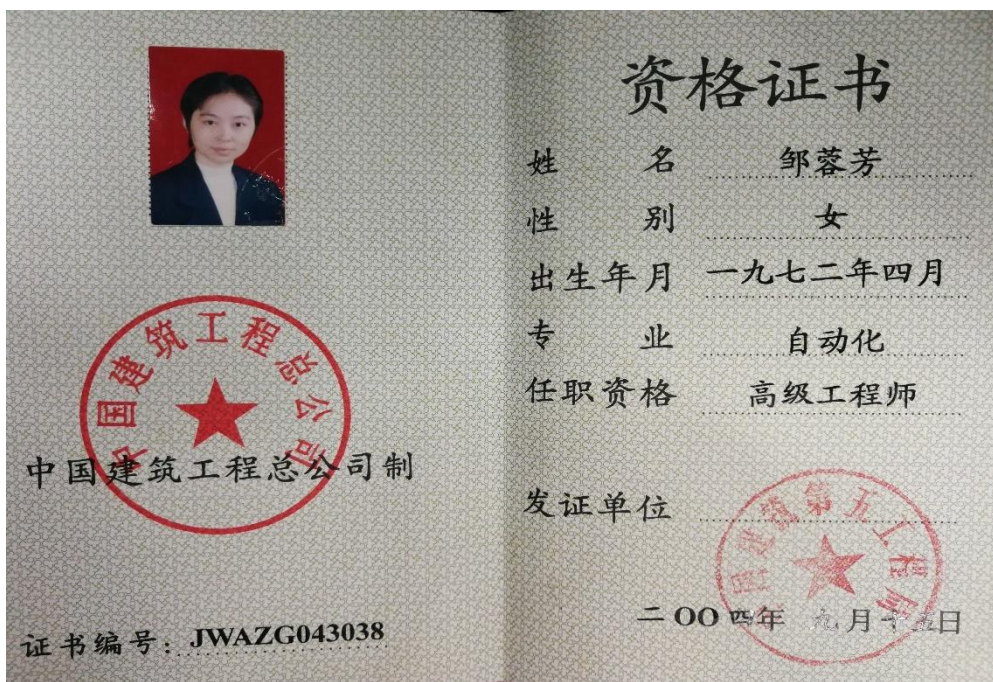 中国建筑工程总公司
中国建筑工程总公司制
证书编号：JWAZG043038
资格证书
姓 名 邹蓉芳
性 别 女
出生年月 一九七二年四月
专 业 自动化
任职资格 高级工程师
发证单位
中国建筑第五工程局
二OO四年 九月十五日